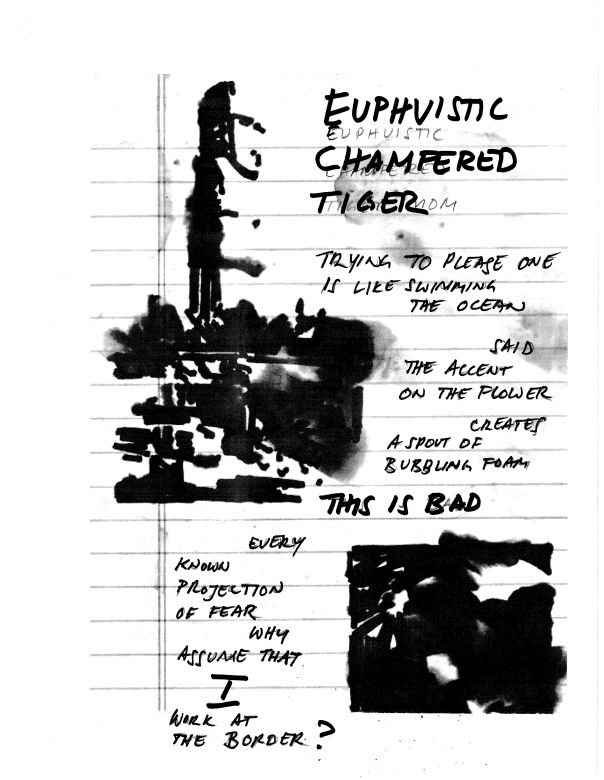 EUPHUISTIC
EUPHUISTIC
CHAMFERED
TIGER
TRYING TO PLEASE ONE
IS LIKE SWIMMING
THE OCEAN
SAID
THE ACCENT
ON THE FLOWER
CREATES
A SPOUT OF
BUBBLING FOAM
THIS IS BAD
EVERY
KNOWN
PROJECTION
OF FEAR
WHY
ASSUME THAT
I
WORK AT
THE BORDER?